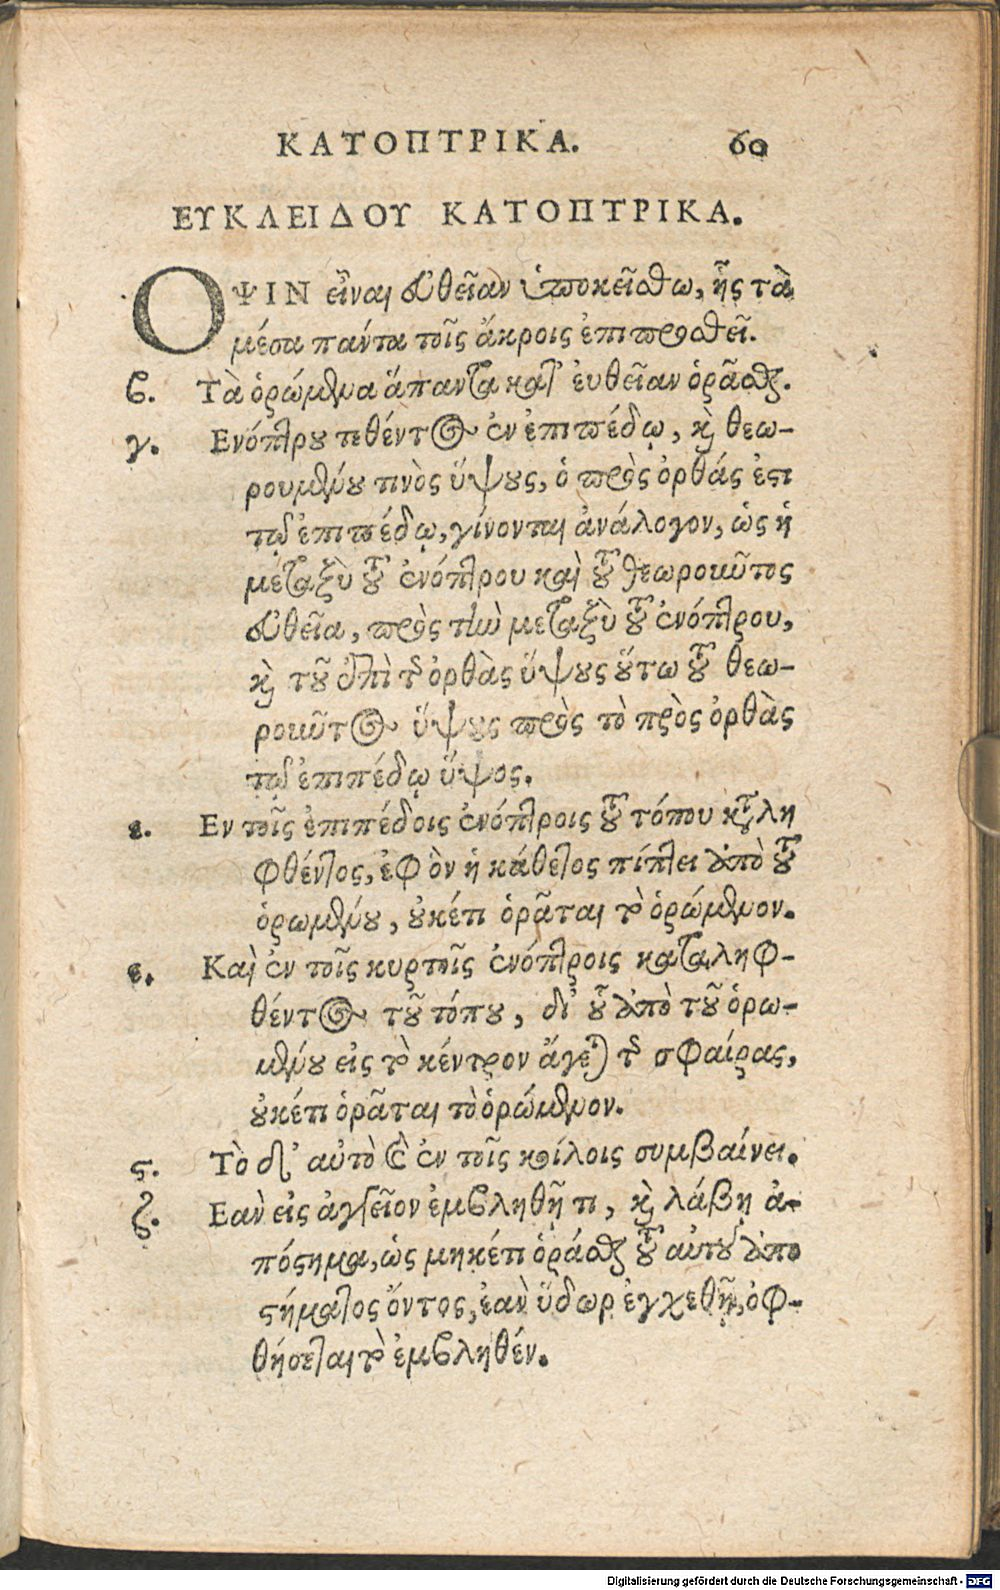 ΚΑΤΟΠΤΡΙΚΑ. 60
ΕΥΚΛΕΙΔΟΥ ΚΑΤΟΠΤΡΙΚΑ.
ΟΨΙΝ εἶναι εὐθεῖαν ὑποκείσθω, ἧς τὰ
μέσα πάντα τοῖς ἄκροις ἐπιπροσθεῖ.
β. Τὰ ὁρώμενα ἅπαντα κατ' ἐυθεῖαν ὁρᾶσθαι.
γ. Ενόπτρου τεθέντος ἐν ἐπιπέδῳ, καὶ θεω-
ρουμένου τινὸς ὕψους, ὁ πρὸς ὀρθάς ἐστι
τῷ ἐπιπέδῳ, γίνονται ἀνάλογον, ὡς ἡ
μεταξὺ τοῦ ἐνόπτρου καὶ τοῦ θεωροῦντος
εὐθεῖα, πρὸς τὴν μεταξὺ τοῦ ἐνόπτρου,
καὶ τοῦ ἐπὶ τῆς ὀρθὰς ὕψους οὕτω τοῦ θεω-
ροῦντος ὕψους πρὸς τὸ πρὸς ὀρθὰς
τῷ ἐπιπέδῳ ὕψος.
Εν τοῖς ἐπιπέδοις ἐνόπτροις τοῦ τόπου καταλη
φθέντος, ἐφ ὃν ἡ κάθετος πίπτει ἀπὸ τοῦ
ὁρωμένου, οὐκέτι ὁρᾶται τὸ ὁρώμενον.
ε. Καὶ ἐν τοῖς κυρτοῖς ἐνόπτροις καταληφ-
θέντος τοῦ τόπου, δι' οὗ ἀπὸ τοῦ ὁρω-
μένου εἰς τὸ κέντρον ἄγεται τῆς σφαίρας,
οὐκέτι ὁρᾶται τὸ ὁρώμενον.
ϛ. Τὸ δ' αὐτὸ καὶ ἐν τοῖς κοίλοις συμβαίνει.
ζ. Εαν εἰς ἀγγεῖον ἐμβληθῇ τι, καὶ λάβῃ ἀ-
πόστημα, ὡς μηκέτι ὁρᾶσθαι τοῦ αὐτοῦ ἀπο
στήματος ὄντος, ἐὰν ὕδωρ ἐγχεθῇ, ὀφ-
θήσεται τὸ ἐμβληθέν.
Digitalisierung gefördert durch die Deutsche Forschungsgemeinschaft - DFG